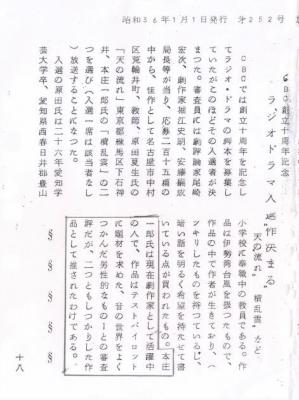 昭和36年1月1日発行 第252号
CBC創立十周年記念
ラジオドラマ入選作決まる
"天の流れ" "積乱雲" など
CBCでは創立十周年を記念し
てラジオ・ドラマの脚本を募集し
ていたがこのほどその入選者が決
まつた。審査員には劇評論家尾崎
宏次、劇作家堀江史朗、安藤編成
局長等が当り、応募二百十五編の
中から、佳作として名古屋市中村
区荒輪井町、教師、原田夏生氏の
「天の流れ」東京都練馬区下石神
井、本庄一郎氏の「積乱雲」の二
つを選び(入選一席は該当者なし
)放送することになつた。
入選の原田氏は二十六年愛知学
芸大学卒、愛知県西春日井郡豊山
小学校に奉職中の教員である。作
品は伊勢湾台風を扱つたもので、
作品の中で作者が生きており、ハ
ツキリしたものを持つているし、
暗い話を明るく希望を持たせて書
いている点が買われたもの。本庄
一郎氏は現在劇作家として活躍中
の人で、作品はテストパイロット
に題材を求めた、音の世界をよく
つかんだ男性的なものーとの審査
評だが、二つともしつかりした作
品として推されたわけである。
§ § § § §
十八